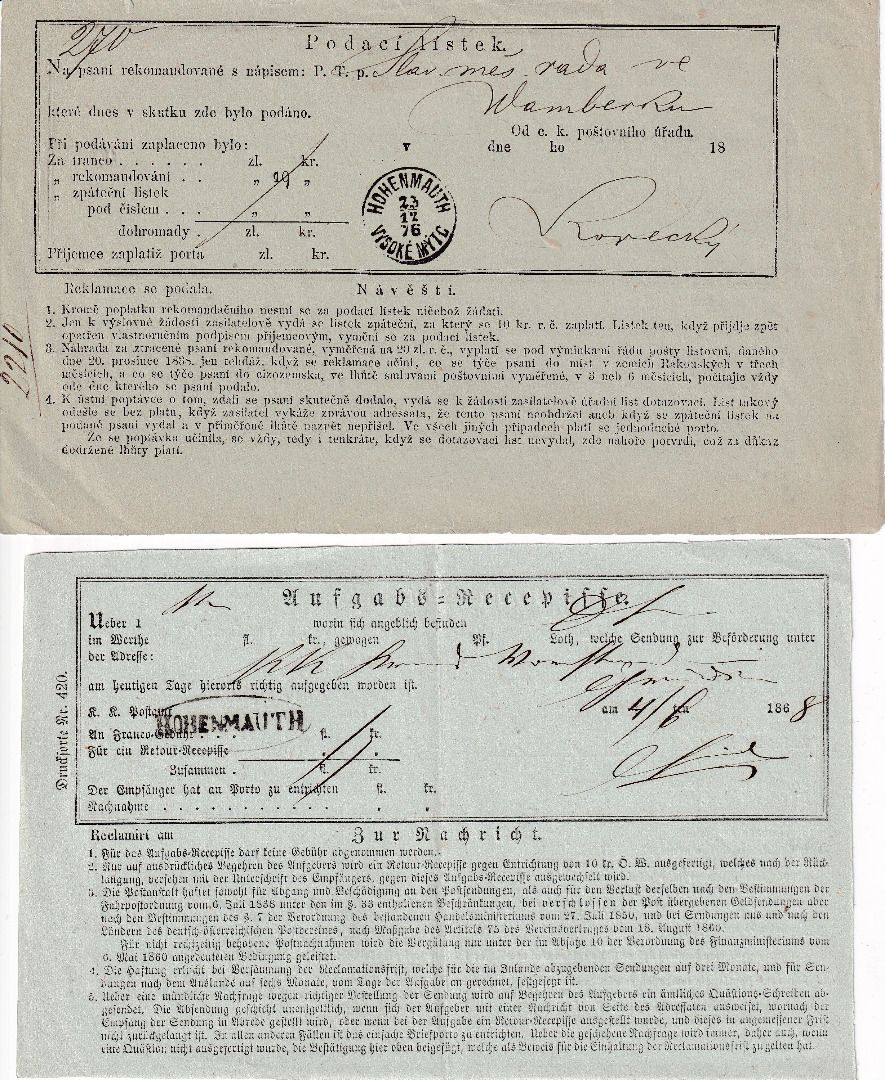 270
Podací lístek.
Na psaní rekomandované s nápisem: P. T. p. Slav. měs. rada ve
Wamberku
které dnes v skutku zde bylo podáno.
Od c. k. poštovního úřadu.
Při podávání zaplaceno bylo: v dne ho 18
Za franco . . . . . . zl. kr.
„ rekomandování . . „ „
„ zpáteční lístek
pod číslem . . . „ „
dohromady . zl. kr.
Příjemce zaplatiž porta zl. kr.
HOHENMAUTH
23
12
76
VYSOKÉ MÝTO
Reklamace se podala. Návěští.
1. Kromě poplatku rekomandačního nesmí se za podací lístek ničehož žádati.
2. Jen k výslovné žádosti zasilatelově vydá se lístek zpáteční, za který se 10 kr. r. č. zaplatí. Lístek ten, když přijdje zpět
opatřen vlastnoručním podpisem příjemcovým, vymění se za podací lístek.
3. Náhrada za ztracené psaní rekomandované, vyměřená na 20 zl. r. č., vyplatí se pod výminkami řádu pošty listovní, daného
dne 20. prosince 1838, jen tehdáž, když se reklamace učiní, co se týče psaní do míst v zemích Rakouských v třech
měsících, a co se týče psaní do cizozemska, ve lhůtě smluvami poštovními vyměřené, v 3 neb 6 měsících, počítajíc vždy
ode dne kterého se psaní podalo.
4. K ústní poptávce o tom, zdali se psaní skutečně dodalo, vydá se k žádosti zasilatelově úřadní list dotazovací. List takový
odešle se bez platu, když zasilatel vykáže zprávou adressata, že tento psaní neobdržel aneb když se zpáteční lístek na
podané psaní vydal a v přiměřené lhůtě nazpět nepřišel. Ve všech jiných případech platí se jednoduché porto.
Že se poptávka učinila, se vždy, tedy i tenkráte, když se dotazovací list nevydal, zde nahoře potvrdí, což za důkaz
dodržené lhůty platí.
Aufgabs-Recepisse.
Ueber 1 worin sich angeblich befinden
im Werthe fl. kr., gewogen Pf. Loth, welche Sendung zur Beförderung unter
der Adresse:
am heutigen Tage hierorts richtig aufgegeben worden ist.
K. K. Postamt am 4/6 1868
HOHENMAUTH
An Franco-Gebühr . . . fl. kr.
Für ein Retour-Recepisse . .
Zusammen . fl. kr.
Der Empfänger hat an Porto zu entrichten fl. kr.
Nachnahme . . . . . . . . . . . . .
Druckforte Nr. 420.
Reclamirt am Zur Nachricht.
1. Für das Aufgabs-Recepisse darf keine Gebühr abgenommen werden.
2. Nur auf ausdrückliches Begehren des Aufgebers wird ein Retour-Recepisse gegen Entrichtung von 10 kr. O. W. ausgefertigt, welches nach der Rück-
langung, versehen mit der Unterschrift des Empfängers, gegen dieses Aufgabs-Recepisse ausgewechselt wird.
3. Die Postanstalt haftet sowohl für Abgang und Beschädigung an den Postsendungen, als auch für den Verlust derselben nach den Bestimmungen der
Fahrpostordnung vom 6. Juli 1838 unter den im §. 33 enthaltenen Beschränkungen, bei verschlossen der Post übergebenen Geldsendungen aber
nach den Bestimmungen des §. 7 der Verordnung des bestandenen Handelsministeriums vom 27. Juli 1850, und bei Sendungen aus und nach den
Ländern des deutsch-österreichischen Postvereines, nach Maßgabe des Artikels 75 des Vereinsvertrages vom 18. August 1860.
Für nicht rechtzeitig behobene Postnachnahmen wird die Vergütung nur unter der im Absatze 10 der Verordnung des Finanzministeriums vom
6. Mai 1860 angedeuteten Bedingung geleistet.
4. Die Haftung erlischt bei Versäumung der Reclamationsfrist, welche für die im Inlande abzugebenden Sendungen auf drei Monate, und für Sen-
dungen nach dem Auslande auf sechs Monate, vom Tage der Aufgabe an gerechnet, festgesetzt ist.
5. Ueber eine mündliche Nachfrage wegen richtiger Bestellung der Sendung wird auf Begehren des Aufgebers ein ämtliches Quästions-Schreiben ab-
gesendet. Die Absendung geschieht unentgeltlich, wenn sich der Aufgeber mit einer Nachricht von Seite des Adressaten ausweiset, wornach der
Empfang der Sendung in Abrede gestellt wird, oder wenn bei der Aufgabe ein Retour-Recepisse ausgestellt wurde, und dieses in angemessener Frist
nicht zurückgelangt ist. In allen anderen Fällen ist das einfache Briefporto zu entrichten. Ueber die geschehene Nachfrage wird immer, daher auch, wenn
eine Quästion nicht ausgefertigt wurde, die Bestätigung hier oben beigefügt, welche als Beweis für die Einhaltung der Reclamationsfrist zu gelten hat.